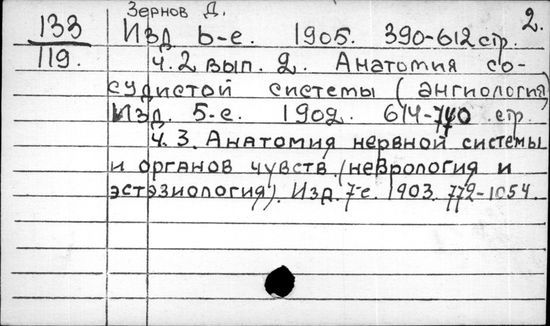 Зернов Д.
2.
133
119.
Изд 6-е. 1905. 390-612 стр.
ч. 2 вып. 2. Анатомия со-
судистой системы (ангиология)
Изд. 5-е. 1902. 614-770 стр.
ч. 3. Анатомия нервной системы
и органов чувств. (неврология и
эстэзиология). Изд. 7-е. 1903. 772-1054.